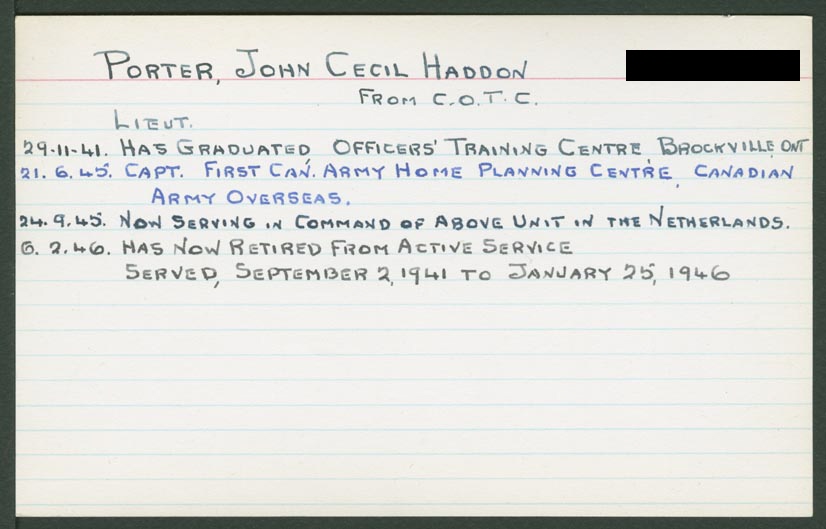 PORTER, JOHN CECIL HADDON
FROM C.O.T.C.
LIEUT.
29.11.41. HAS GRADUATED, OFFICERS' TRAINING CENTRE, BROCKVILLE, ONT
21.6.45. CAPT. FIRST CAN. ARMY HOME PLANNING CENTRE, CANADIAN
ARMY OVERSEAS.
24.9.45. NOW SERVING IN COMMAND OF ABOVE UNIT IN THE NETHERLANDS.
6.2.46. HAS NOW RETIRED FROM ACTIVE SERVICE
SERVED, SEPTEMBER 2, 1941 TO JANUARY 25, 1946